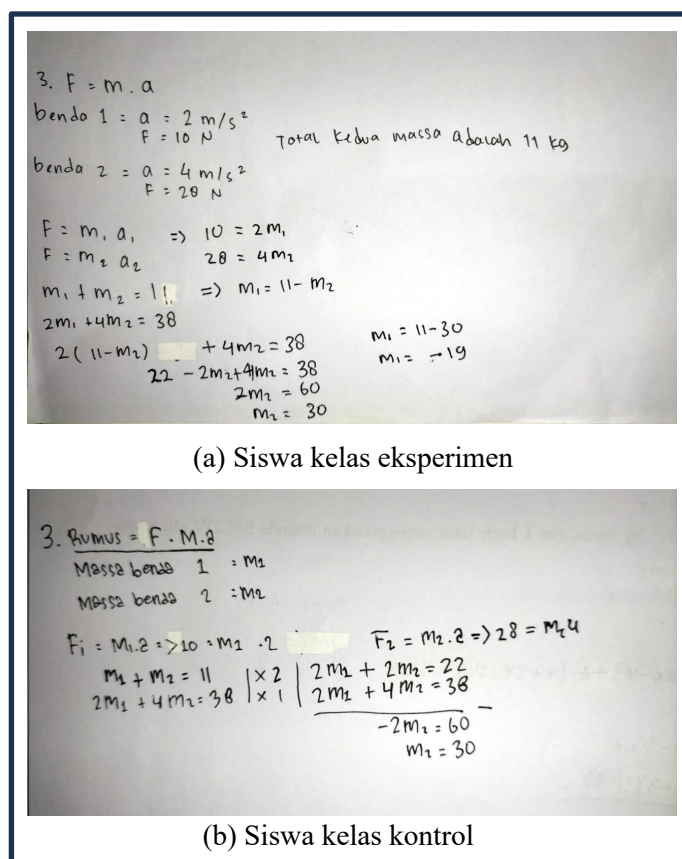 3. F = m . a
benda 1 = a = 2 m/s²
F = 10 N
Total kedua massa adalah 11 kg
benda 2 = a = 4 m/s²
F = 28 N
F = m₁ a₁ => 10 = 2m₁
F = m₂ a₂ 28 = 4m₂
m₁ + m₂ = 11 => m₁ = 11 - m₂
2m₁ + 4m₂ = 38
2 ( 11 - m₂) + 4m₂ = 38
22 - 2m₂ + 4m₂ = 38
2m₂ = 60
m₂ = 30
m₁ = 11 - 30
m₁ = -19
(a) Siswa kelas eksperimen
3. Rumus = F . M . a
Massa benda 1 = m1
Massa benda 2 = m2
F₁ = M₁.a => 10 = m1 . 2 F₂ = m₂ . a => 28 = m₂4
m₁ + m₂ = 11 | x 2 | 2m₁ + 2m₂ = 22
2m₁ + 4m₂ = 38 | x 1 | 2m₁ + 4m₂ = 38
-2m₂ = 60
m₂ = 30
(b) Siswa kelas kontrol